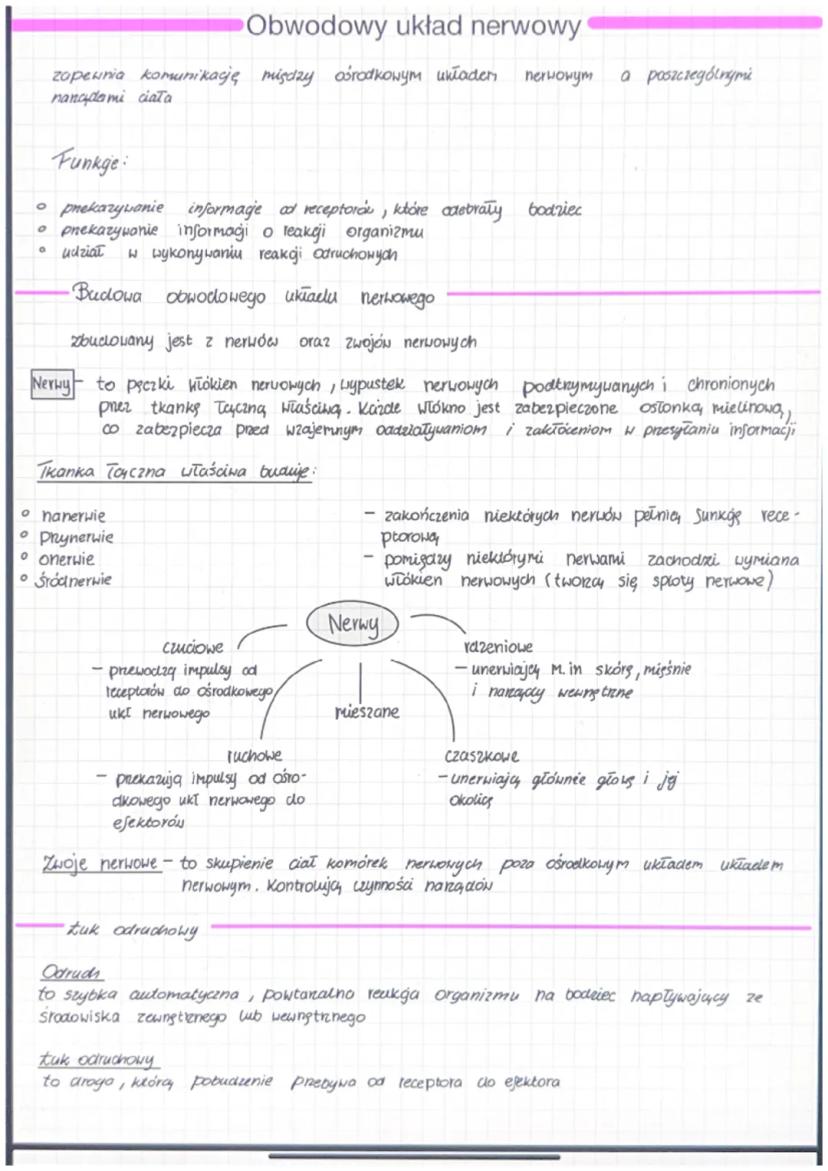 Obwodowy układ nerwowy
zapewnia komunikację między ośrodkowym układem nerwowym a poszczególnymi
narządami ciała
Funkcje:
przekazywanie informacje od receptorów, które odebrały bodziec
przekazywanie informacji o reakcji organizmu
udział w wykonywaniu reakcji odruchowych
Budowa obwodowego układu nerwowego
zbudowany jest z nerwów oraz zwojów nerwowych
Nerwy - to pęczki włókien nerwowych, wypustek nerwowych podtrzymywanych i chronionych
przez tkankę łączną właściwą. Każde włókno jest zabezpieczone osłonką mielinową,
co zabezpiecza przed wzajemnym oddziaływaniom i zakłóceniom w przesyłaniu informacji
Tkanka łączna właściwa buduje:
nanerwie
Przynerwie
onerwie
Śródnerwie
- zakończenia niektórych nerwów pełnią funkcję rece-
ptorową
- pomiędzy niektórymi nerwami zachodzi wymiana
włókien nerwowych (tworzą się sploty nerwowe)
Nerwy
czuciowe
- przewodzą impulsy od
receptorów do ośrodkowego
ukł nerwowego
rdzeniowe
- unerwiają M.in skórę, mięśnie
i narządy wewnętrzne
mieszane
ruchowe
- przekazują impulsy od ośro-
dkowego ukł nerwowego do
efektorów
czaszkowe
- unerwiają głównie głowę i jej
okolicę
Zwoje nerwowe - to skupienie ciał komórek nerwowych poza ośrodkowym układem układem
nerwowym. Kontrolują czynności narządów
Łuk odruchowy
Odruch
to szybka automatyczna, powtarzalna reakcja organizmu na bodziec napływający ze
środowiska zewnętrznego lub wewnętrznego
Łuk odruchowy
to droga, którą pobudzenie przebywa od receptora do efektora